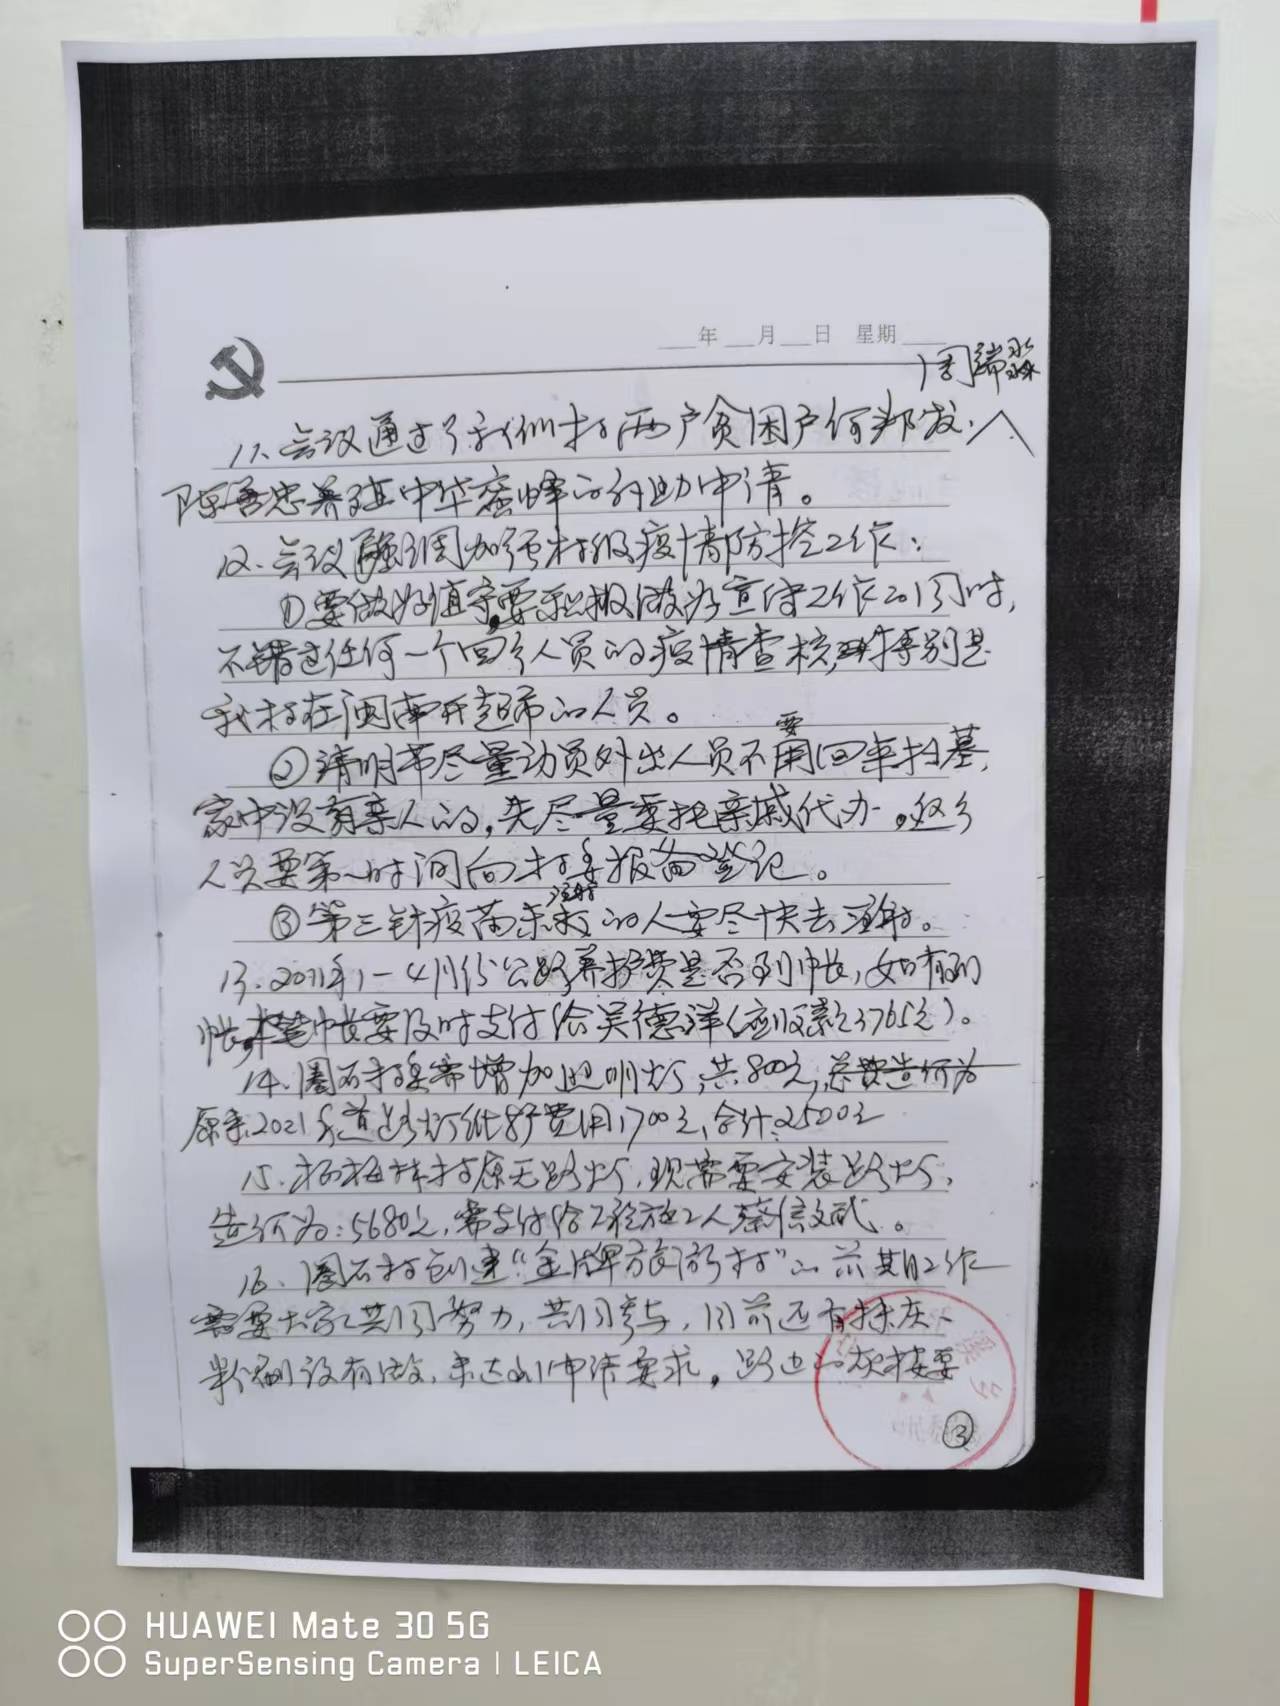 年 月 日 星期
周瑞淼
11、会议通过了我们村两户贫困户何邦发、
陈善忠养殖中华蜜蜂的补助申请。
12、会议强调加强村级疫情防控工作：
①要做好值守,要积极做好宣传工作的同时,
不错过任何一个回乡人员的疫情查核,特别是
我村在闽南开超市的人员。
②清明节尽量动员外出人员不要用回来扫墓,
家中没有亲人的,先尽量委托亲戚代办。返乡
人员要第一时间向村委报备登记。
③第三针疫苗未注射的人要尽快去注射。
13、2011年1-4月份公路养护费是否到帐,如有到
帐,要及时支付给吴德洋(应收款3765元)。
14、圈石村寨增加照明灯,共800元,总费造价为
原来2021年道路灯维护费用1700元,合计2500元
15、杨梅林村原无路灯,现需要安装路灯,
造价为:5680元,需支付给工程施工人蔡信斌。
16、圈石村创建“金牌旅游村”的前期工作
需要大家共同努力,共同参与,目前还有抹灰、
粉刷没有做,未达到申请要求。路边的灰接要
③
HUAWEI Mate 30 5G
SuperSensing Camera | LEICA